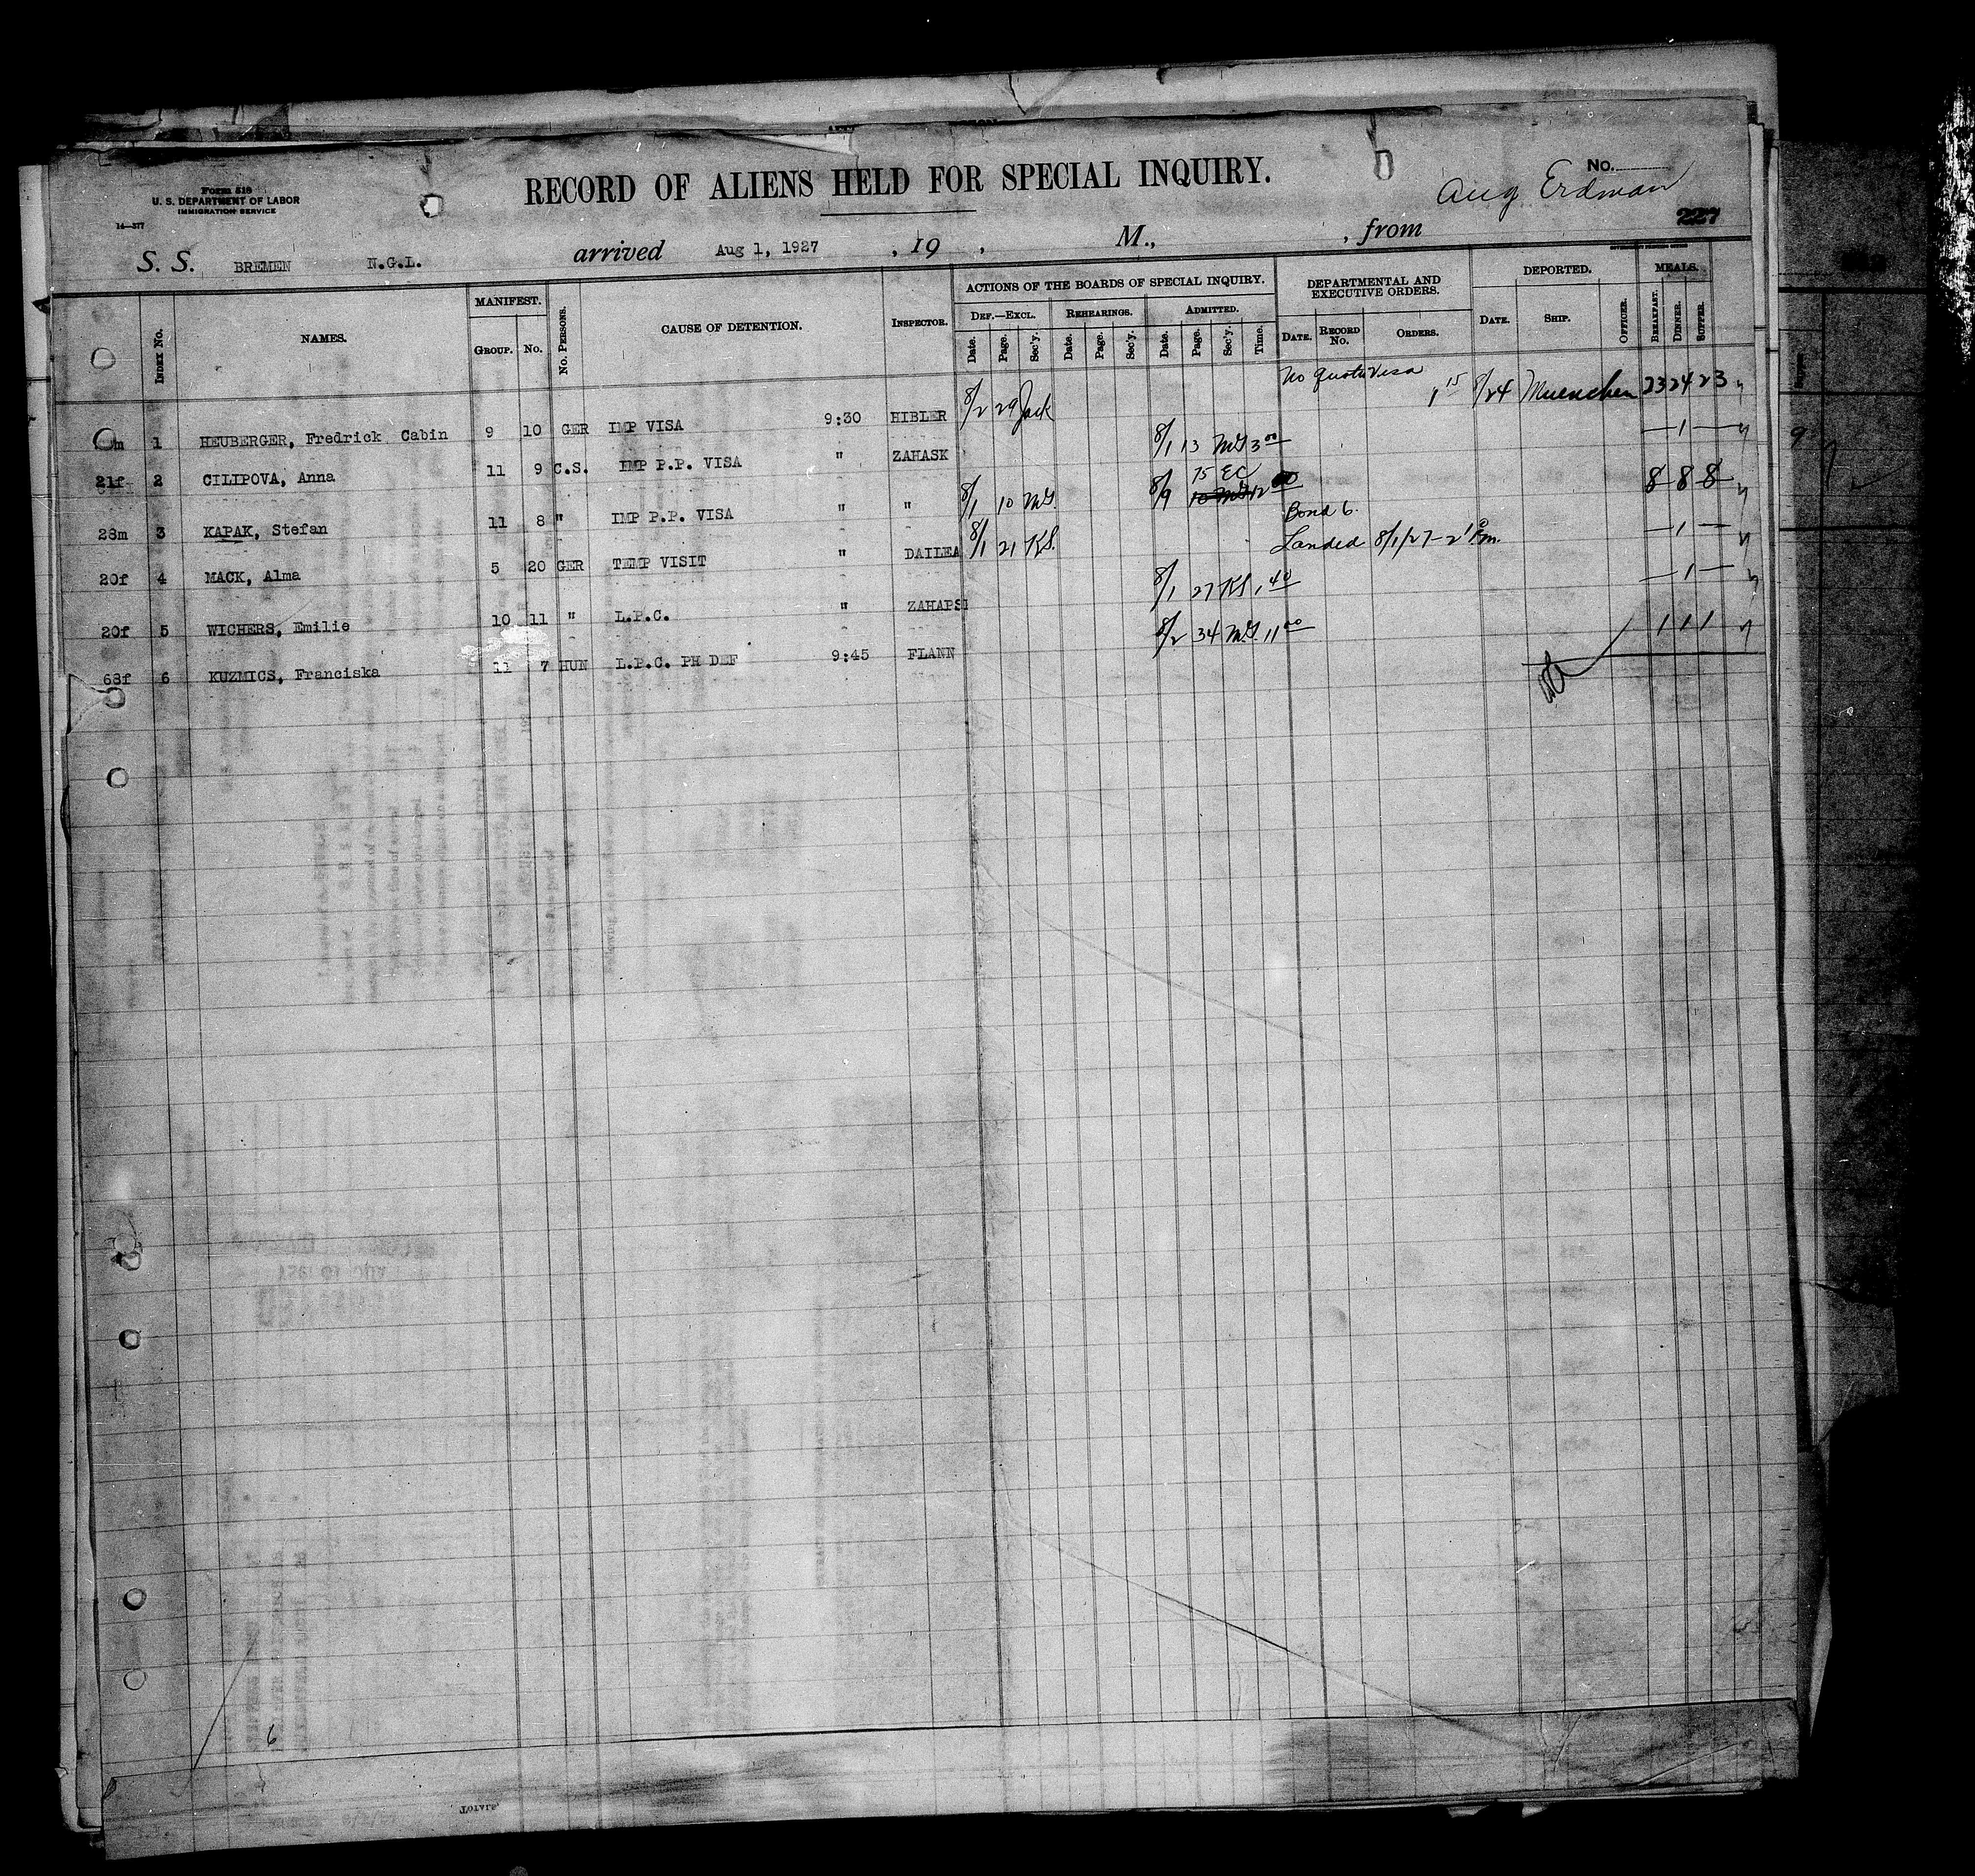 Form 518
U. S. DEPARTMENT OF LABOR
IMMIGRATION SERVICE
14—377
RECORD OF ALIENS HELD FOR SPECIAL INQUIRY.
No.
Aug Erdman
227
S. S. BREMEN N.G.L. arrived Aug 1, 1927 , 19 , M., , from
INDEX No. NAMES. MANIFEST. GROUP. No. No. PERSONS. CAUSE OF DETENTION. INSPECTOR.
ACTIONS OF THE BOARDS OF SPECIAL INQUIRY.
DEF.—EXCL. REHEARINGS. ADMITTED.
Date. Page. Sec'y. Date. Page. Sec'y. Date. Page. Sec'y. Time.
DEPARTMENTAL AND EXECUTIVE ORDERS.
DATE. RECORD No. ORDERS.
DEPORTED.
DATE. SHIP. OFFICER.
MEALS.
BREAKFAST. DINNER. SUPPER.
m 1 HEUBERGER, Fredrick Cabin 9 10 GER IMP VISA 9:30 HIBLER 8/2 29 Jack No Quota Visa 1 15 8/24 Muenchen 23 24 23
21f 2 CILIPOVA, Anna 11 9 C.S. IMP P.P. VISA " ZAHASK 8/1 13 MG 3 00 — 1 —
28m 3 KAPAK, Stefan 11 8 " IMP P.P. VISA " " 8/1 10 MG. 8/9 75 EC 12 Bond 6. 8 8 8
20f 4 MACK, Alma 5 20 GER TEMP VISIT " DAILEA 8/1 21 KS. Landed 8/1/27 — 2 P.m. — 1 —
20f 5 WICHERS, Emilie 10 11 " L.P.C. " ZAHAPSI 8/1 27 KS 1 40 — 1 —
68f 6 KUZMICS, Franciska 11 7 HUN L.P.C. PH DEF 9:45 FLANN 8/2 34 M.G. 11 00 1 1 1
9
6